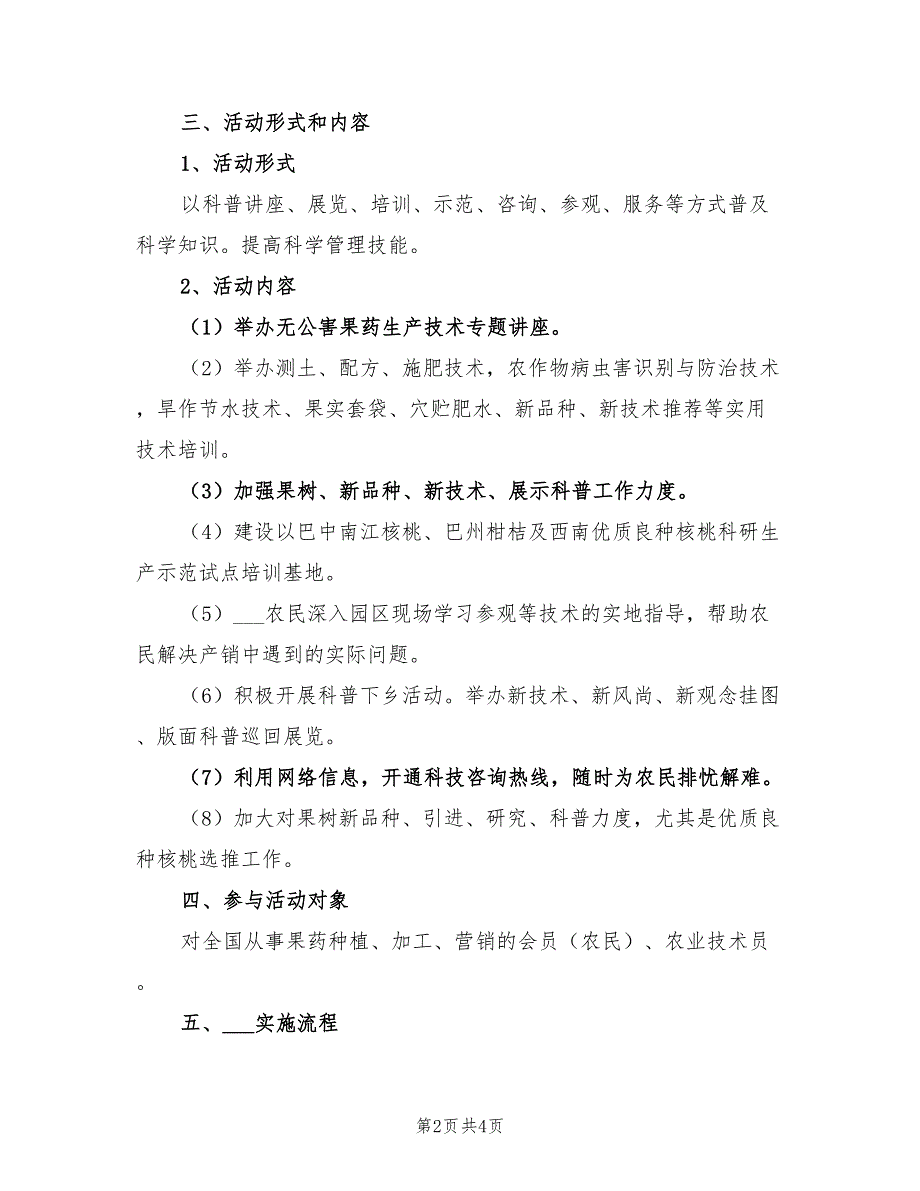 三、活动形式和内容
1、活动形式
以科普讲座、展览、培训、示范、咨询、参观、服务等方式普及
科学知识。提高科学管理技能。
2、活动内容
（1）举办无公害果药生产技术专题讲座。
（2）举办测土、配方、施肥技术，农作物病虫害识别与防治技术
，旱作节水技术、果实套袋、穴贮肥水、新品种、新技术推荐等实用
技术培训。
（3）加强果树、新品种、新技术、展示科普工作力度。
（4）建设以巴中南江核桃、巴州柑桔及西南优质良种核桃科研生
产示范试点培训基地。
（5）___农民深入园区现场学习参观等技术的实地指导，帮助农
民解决产销中遇到的实际问题。
（6）积极开展科普下乡活动。举办新技术、新风尚、新观念挂图
、版面科普巡回展览。
（7）利用网络信息，开通科技咨询热线，随时为农民排忧解难。
（8）加大对果树新品种、引进、研究、科普力度，尤其是优质良
种核桃选推工作。
四、参与活动对象
对全国从事果药种植、加工、营销的会员（农民）、农业技术员
。
五、___实施流程
第2页共4页